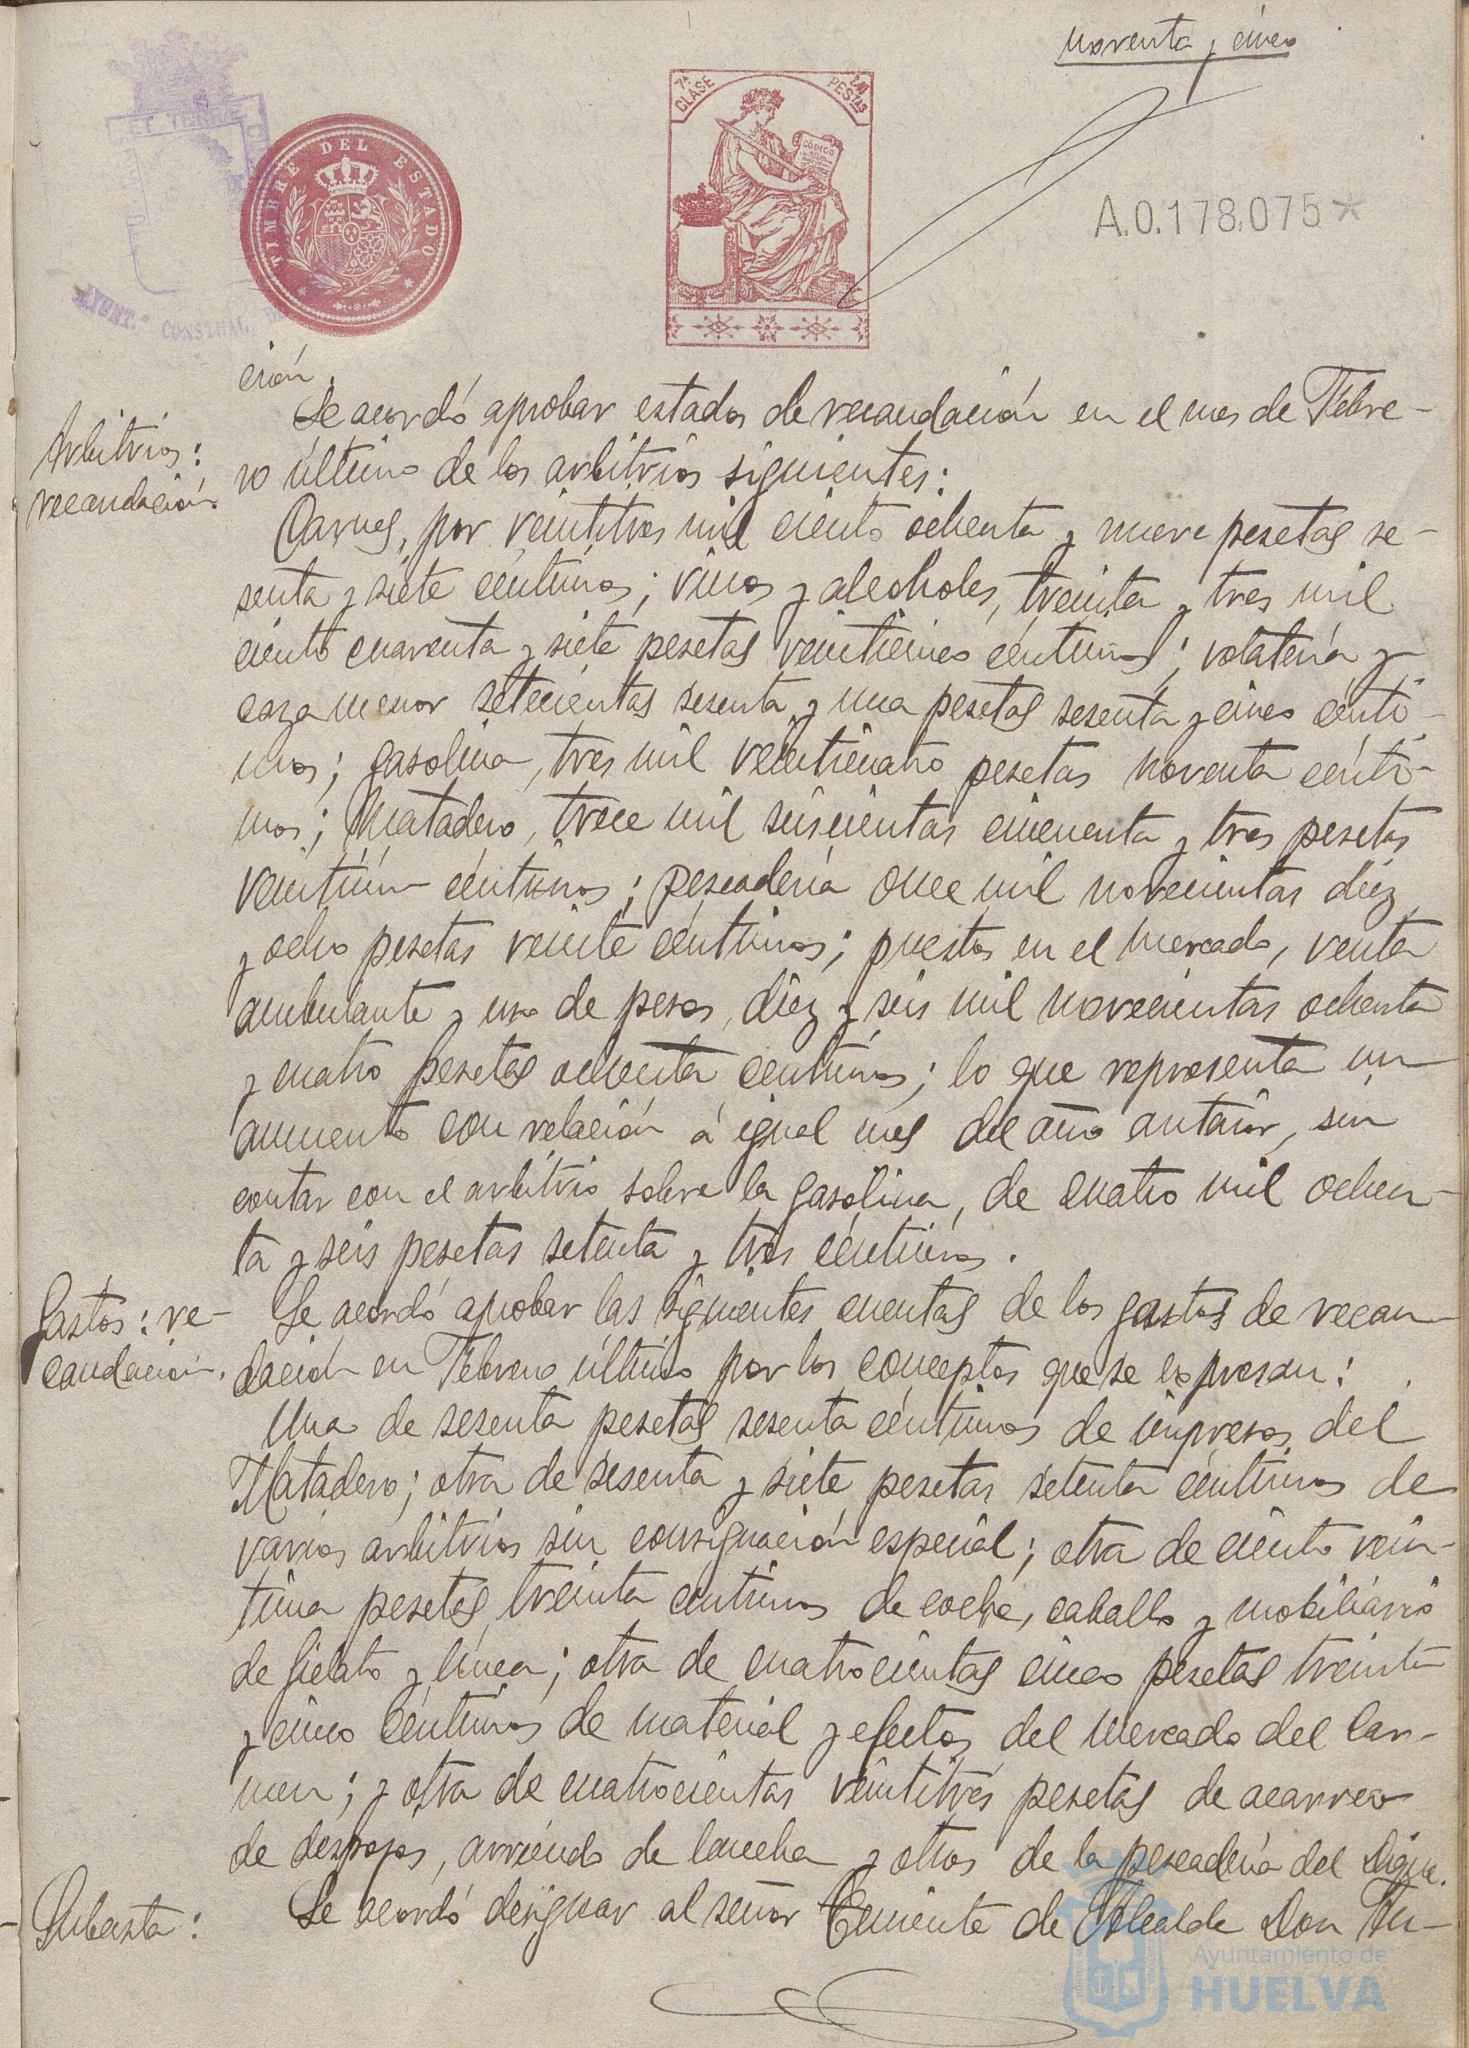 noventa y cinco
7ª CLASE
2,40 PESETAS
CÓDIGO
TIMBRE DEL ESTADO
AYUNT.º CONSTNAL.
A.0.178.075*
ción.
Arbitrios:
recaudación.
Se acordó aprobar estados de recaudación en el mes de Febre-
ro último de los arbitrios siguientes:
Carnes, por veintitres mil ciento ochenta y nueve pesetas se-
senta y siete céntimos; vinos y alcoholes, treinta y tres mil
ciento cuarenta y siete pesetas veinticinco céntimos; volatería y
caza menor setecientas sesenta y una pesetas sesenta y cinco cénti-
mos; gasolina, tres mil veinticuatro pesetas noventa cénti-
mos; Matadero, trece mil seiscientas cincuenta y tres pesetas
veintiún céntimos; pescadería once mil novecientas diez
y ocho pesetas veinte céntimos; puestos en el mercado, venta
ambulante y uso de pesos, diez y seis mil novecientas ochenta
y cuatro pesetas ochenta centimos; lo que representa un
aumento con relación á igual mes del año anterior, sin
contar con el arbitrio sobre la gasolina, de cuatro mil ochen-
ta y seis pesetas setenta y tres céntimos.
Gastos: re-
caudación.
Se acordó aprobar las siguientes cuentas de los gastos de recau-
dación en Febrero último por los conceptos que se expresan:
Una de sesenta pesetas sesenta céntimos de impresos del
Matadero; otra de sesenta y siete pesetas setenta céntimos de
varios arbitrios sin consignación especial; otra de ciento vein-
tiuna pesetas treinta centimos de coche, caballo y mobiliario
de fielato y línea; otra de cuatrocientas cinco pesetas treinta
y cinco céntimos de material y efectos del Mercado del Car-
men; y otra de cuatrocientas veintitrés pesetas de acarreo
de despojos, arriendo de lancha y otros de la pescadería del Dique.
Subasta:
Se acordó designar al señor Teniente de Alcalde Don
Ayuntamiento de
HUELVA